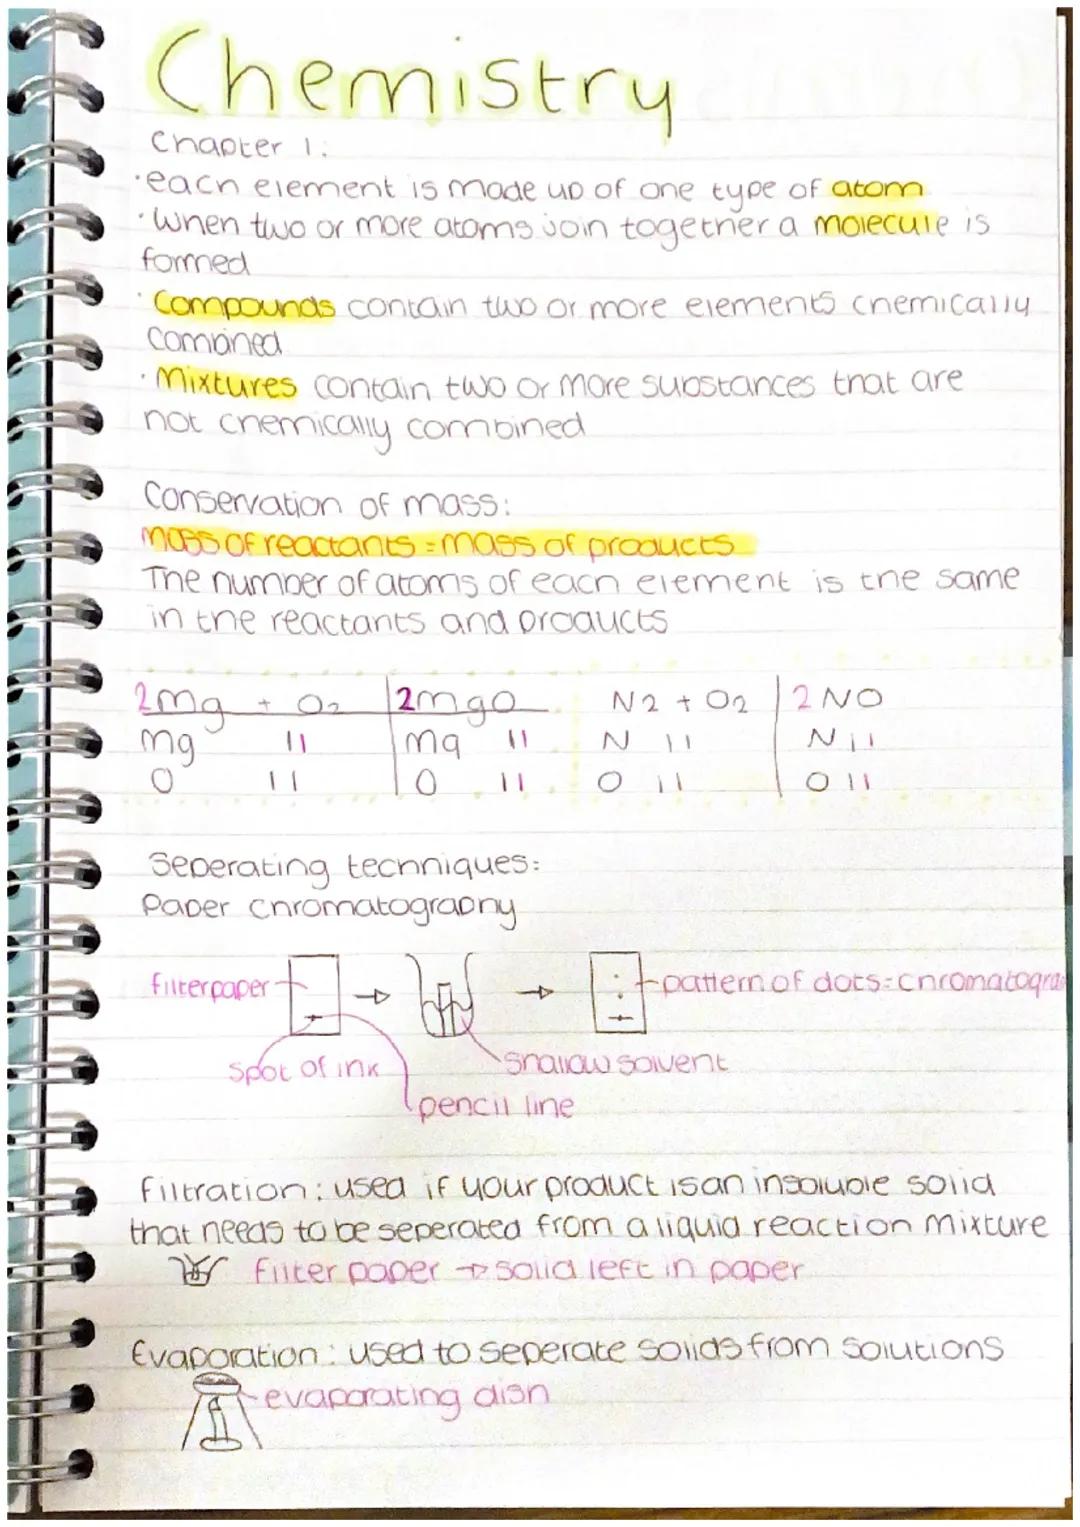 Chemistry
Chapter 1:
·each element is made up of one type of atom
·When two or more atoms join together a molecule is
formed
·Compounds contain two or more elements chemically
Combined
·Mixtures contain two or more substances that are
not chemically combined
Conservation of mass:
mass of reactants = mass of products
The number of atoms of each element is the same
in the reactants and products
2Mg + O2 | 2MgO N2 + O2 | 2NO
Mg 11 Mg 11 N 11 N 11
O 11 O 11 O 11 O 11
Seperating techniques:
Paper chromatography
filterpaper → → pattern of dots = chromatogra
spot of ink shallow solvent
pencil line
filtration: used if your product is an insoluble solid
that needs to be seperated from a liquid reaction mixture
filter paper → solid left in paper
Evaporation: used to seperate solids from solutions
evaporating dish